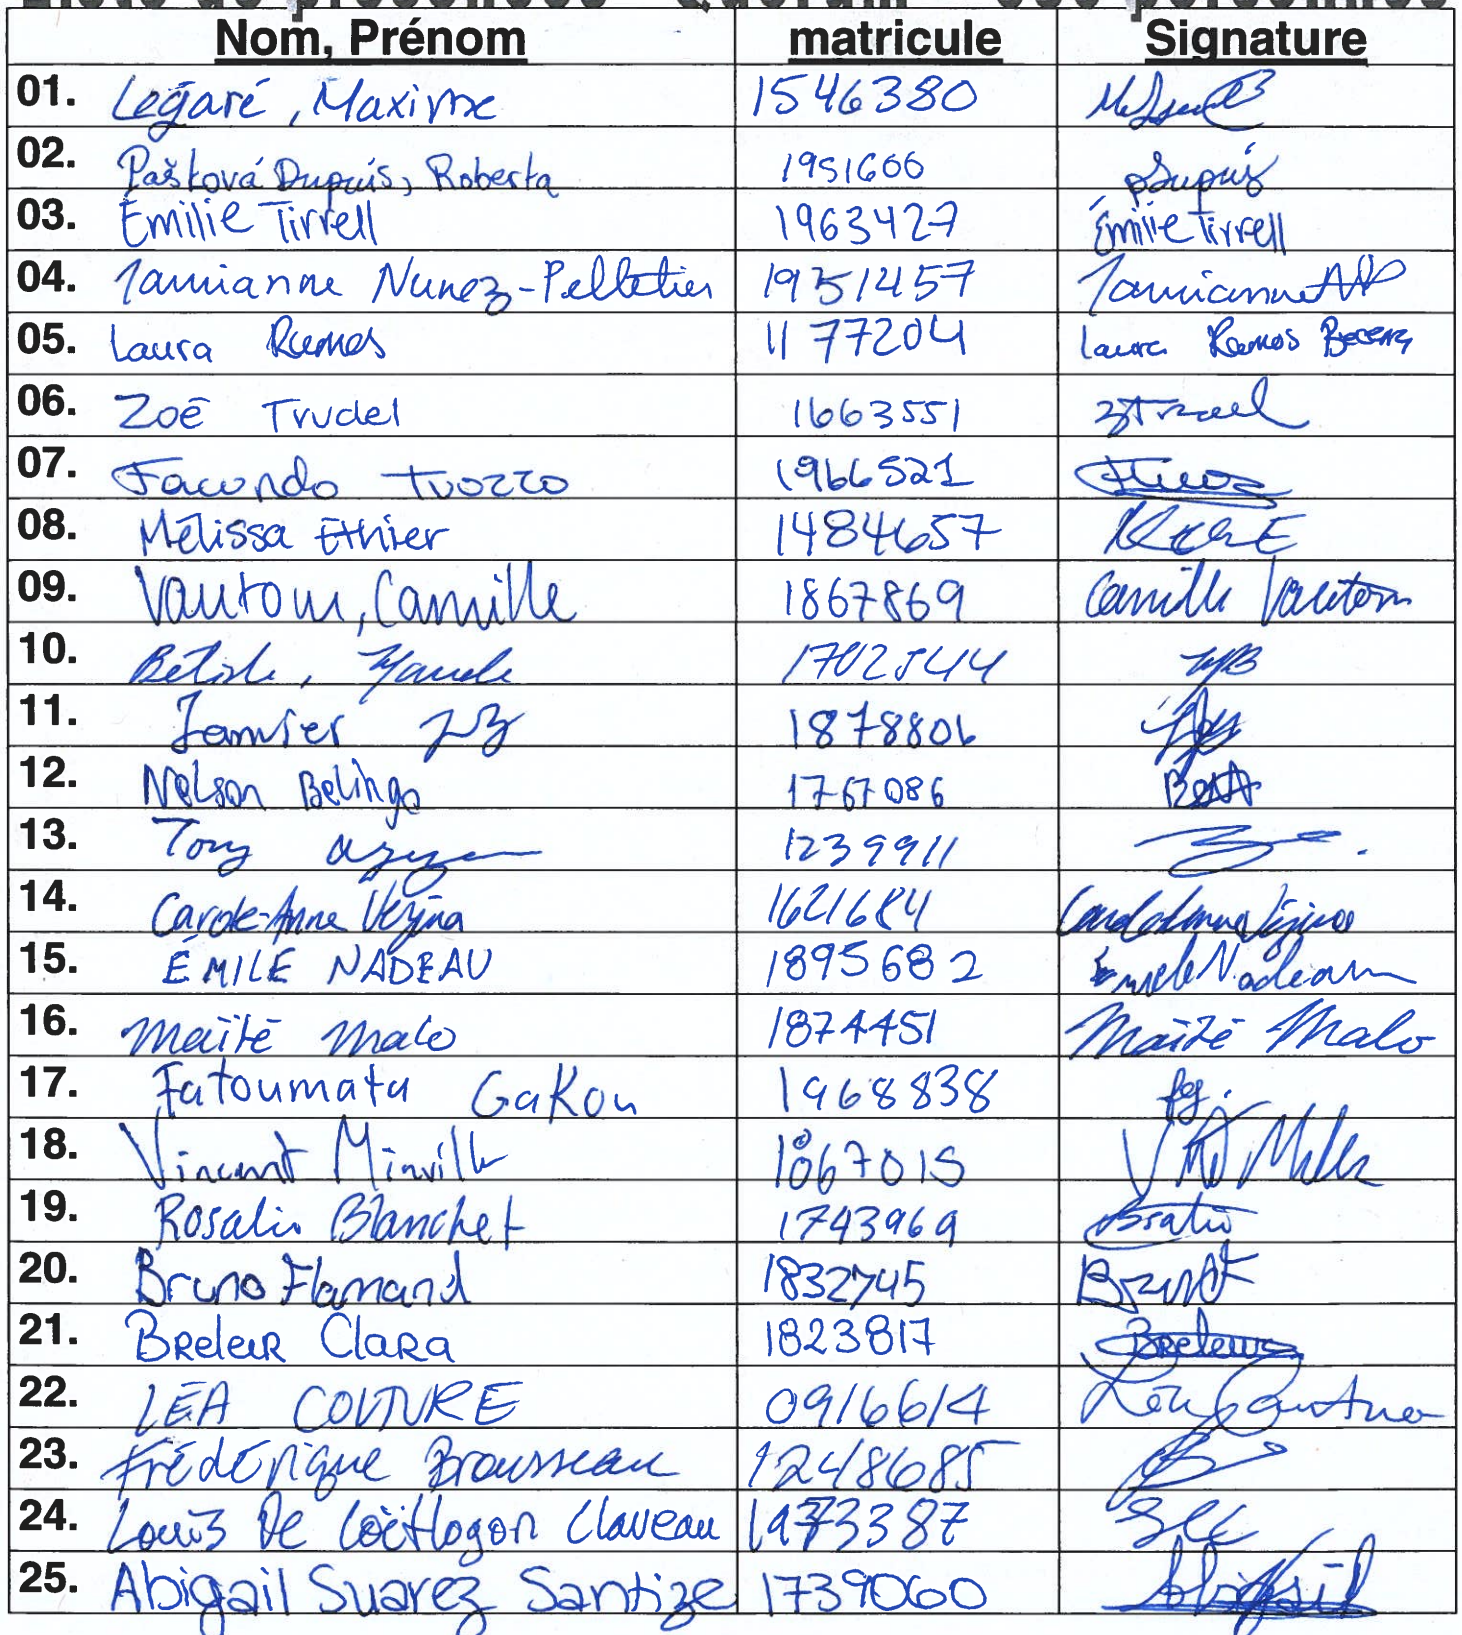 Nom, Prénom matricule Signature
01. Legaré, Maxime 1546380
02. Paštová Dupuis, Roberta 1951600 Dupuis
03. Émilie Tirrell 1963427 Émilie Tirrell
04. Tamianne Nunez-Pelletier 1951457 Tamianne NP
05. Laura Ramos 1177204 Laura Ramos
06. Zoé Trudel 1663551
07. Facundo Tuozzo 1966521
08. Mélissa Ethier 1484657
09. Vautour, Camille 1867869 Camille Vautour
10. 1702544
11. 1878806
12. Nelson Belinga 1767086
13. Tony 1239911
14. Carole-Anne Vézina 1621684 Carole Anne Vézina
15. ÉMILE NADEAU 1895682 Émile Nadeau
16. Maïté Malo 1874451 Maïté Malo
17. Fatoumata Gakou 1968838 fg.
18. Vincent Minville 1867015
19. Rosalie Blanchet 1743969
20. Bruno Flamand 1832745
21. Breleur Clara 1823817 Breleur
22. LÉA COUTURE 0916614 Léa Couture
23. Frédérique Brousseau 1248685
24. Louis De Coëtlogon Claveau 1973387
25. Abigail Suarez Santize 1739060 Abigail